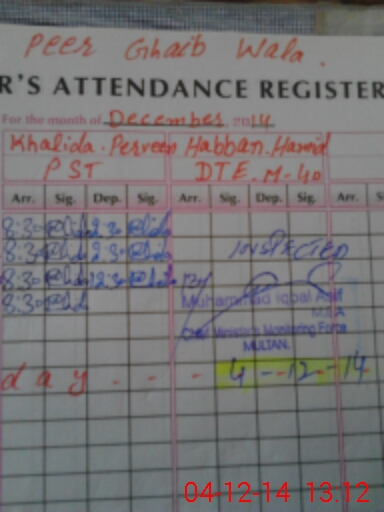 Peer Ghaib Wala.
R'S ATTENDANCE REGISTER
For the month of December, 2014
Khalida Perveen Habban Hamid
PST DTE. M-40
Arr. Sig. Dep. Sig. Arr. Sig. Dep. Sig. Arr. S
8:30 12:30
8:30 12:30 INSPECTED
8:30 12:30
8:30 Muhammad Iqbal Asif
M.E.A
Chief Minister's Monitoring Force
MULTAN.
day - - - 4-12-14
04-12-14 13.12